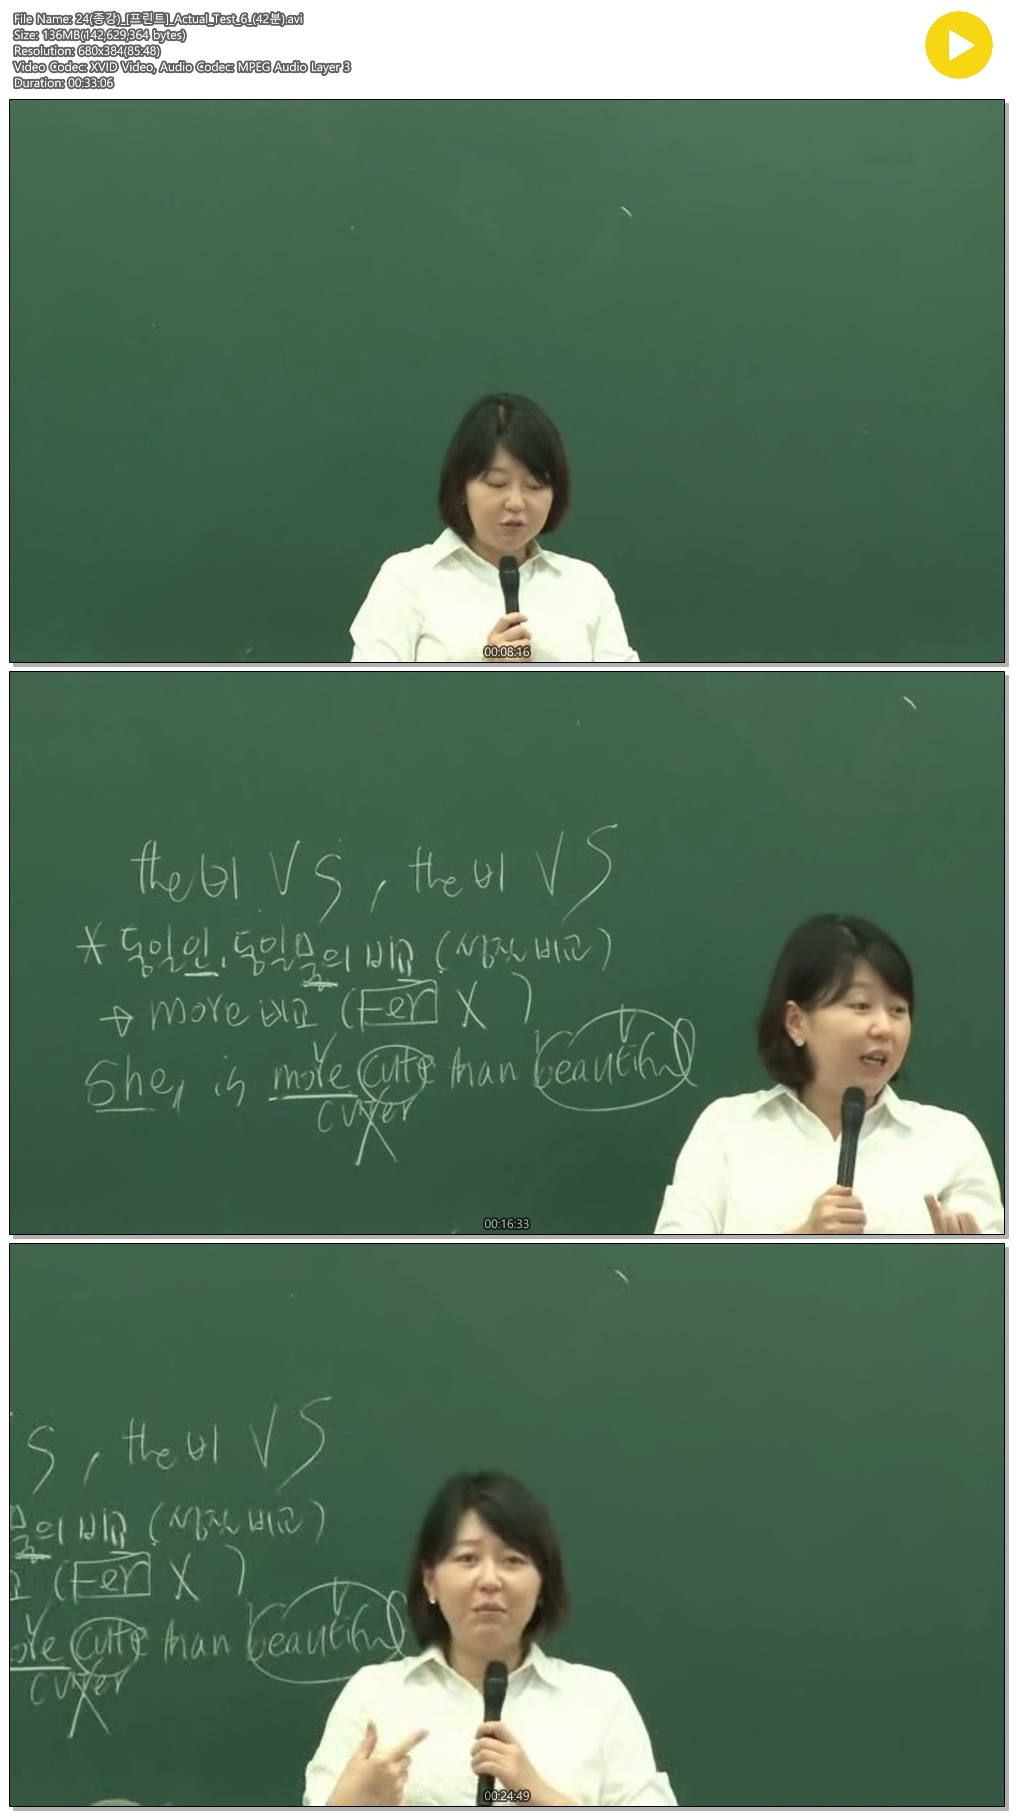 File Name: 24(종강)_[프린트]_Actual_Test_6_(42분).avi
Size: 136MB(142,629,364 bytes)
Resolution: 680x384(85:48)
Video Codec: XVID Video, Audio Codec: MPEG Audio Layer 3
Duration: 00:33:06
00:08:16
the 비 V S, the 비 V S
* 동일인, 동일물의 비교 (성질비교)
→ more 비교 (er X)
She is more cute than beautiful
cuter
00:16:33
S, the 비 V S
물의 비교 (성질비교)
(er X)
cute than beautiful
cuter
00:24:49